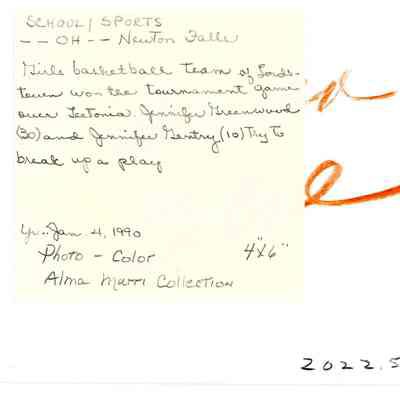 SCHOOL/SPORTS
-- OH -- Newton Falls
Girls basketball team of Lords-
town won the tournament game
over Leetonia. Jennifer Greenwood
(30) and Jennifer Gentry (10) Try to
break up a play
Yr.. Jan. 4, 1990
Photo - Color 4"x6"
Alma Marri Collection
2022.5